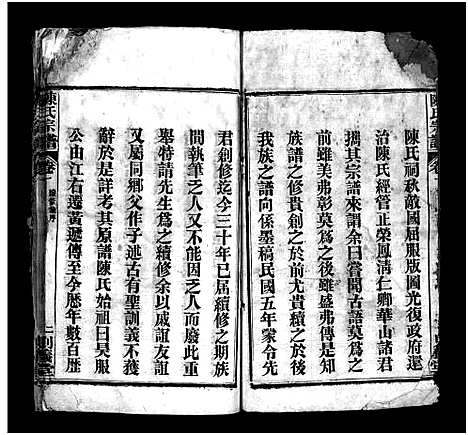 陳氏宗譜
陳氏祠秋敵國屈服版圖光復政府還
治陳氏經管正榮鳳清仁卿華山諸君
擕其宗譜來謂余曰嘗聞古語莫為之
前雖美弗彰莫為之後雖盛弗傳是知
族譜之修貴創之於前尤貴續之於後
我族之譜向係墨稿民國五年蒙令先
君創修迄今三十年已屆續修之期族
間執筆之人又不如前之人而廢此重
舉特請先生為之續修余以戚誼友誼
又屬同鄉父作子述古有聖訓義不獲
辭於是詳考其原譜陳氏始祖曰昊服
公由江右遷黃遞傳至今歷年數百歷
陳氏宗譜